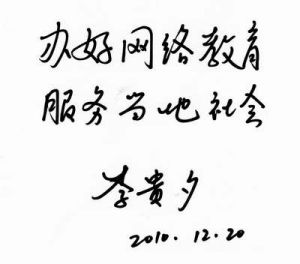 办好网络教育
服务当地社会
李贵夕
2010.12.20